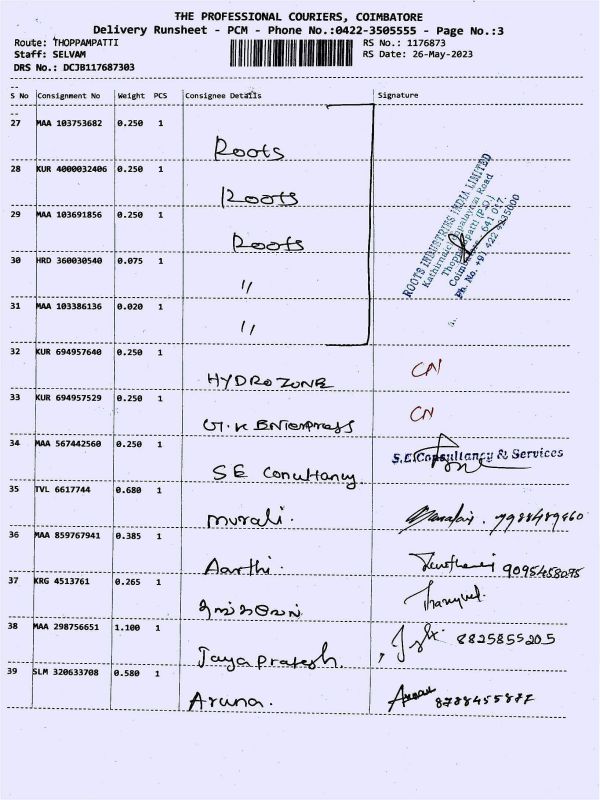 THE PROFESSIONAL COURIERS, COIMBATORE
Delivery Runsheet - PCM - Phone No.:0422-3505555 - Page No.:3
Route: THOPPAMPATTI RS No.: 1176873
Staff: SELVAM RS Date: 26-May-2023
DRS No.: DCJB117687303
S No Consignment No Weight PCS Consignee Details Signature
27 MAA 103753682 0.250 1
Roots
28 KUR 4000032406 0.250 1
Roots
29 MAA 103691856 0.250 1
Roots
30 HRD 360030540 0.075 1
"
31 MAA 103386136 0.020 1
"
ROOTS INDUSTRIES INDIA LIMITED
Road
641 017
Ph. No. +91 422 4235000
32 KUR 694957640 0.250 1
HYDROZONE CN
33 KUR 694957529 0.250 1
G.K ENterpress CN
34 MAA 567442560 0.250 1
SE Conultancy S.E.Consultancy & Services
35 TVL 6617744 0.680 1
murali.
36 MAA 859767941 0.385 1
Aarthi. 9095458075
37 KRG 4513761 0.265 1
38 MAA 298756651 1.100 1
Jaya prakesh. 8825855205
39 SLM 320633708 0.580 1
Aruna. 8788455877